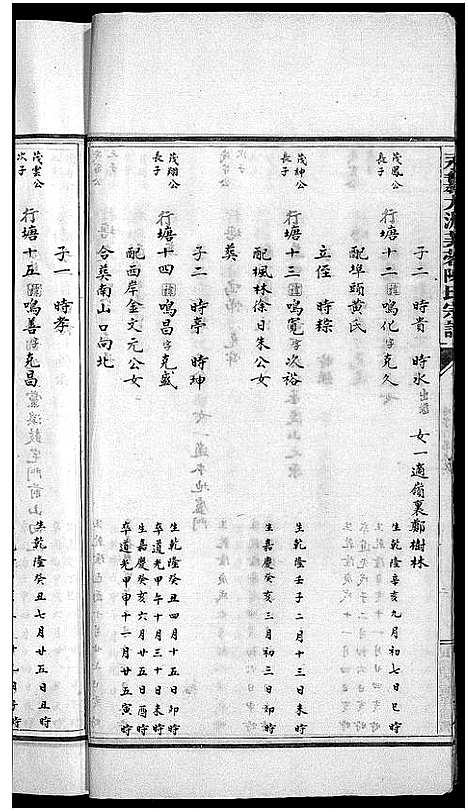 茂鳳公
長子
行塘十二 諱鳴化字克久 生乾隆辛亥九月初七日巳時
配埠頭黃氏
子二 時貴 時水出繼 女一適嶺裏鄭樹林
茂神公
長子
行塘十三 諱鳴寬字次裕 生乾隆壬子二月十三日未時
配楓林徐日朱公女 生嘉慶癸亥三月初三日卯時
立侄 時琮
茂翔公
長子
行塘十四 諱鳴昌字克盛 生乾隆癸丑四月十五日卯時
卒道光甲午十月三十日未時
配西岸金文元公女 生嘉慶癸亥六月廿五日酉時
卒道光甲申十一月廿五寅時
合葬南山口向北
子二 時亭 時珅
葬
茂雲公
次子
行塘十五 諱鳴善字克昌 生乾隆癸丑七月廿五日丑時
子一 時孝